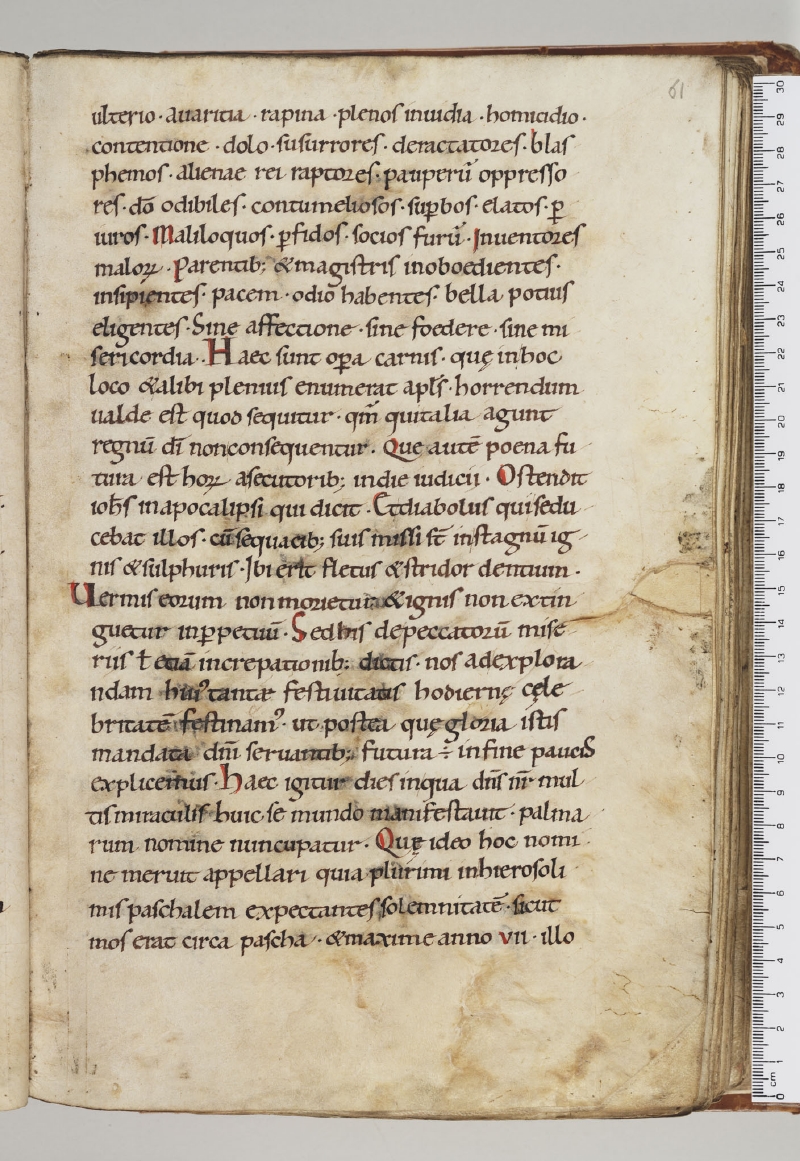 61
ulterio · auaritia · rapina · plenos inuidia · homicidio ·
contentione · dolo · susurrores · detractatores · blas
phemos · alienae rei raptores · pauperū oppresso
res · dō odibiles · contumeliosos · suꝑbos · elatos · ꝑ
iuros · Maliloquos · ꝑfidos · socios furū · Inuentores
maloꝝ · Parentib; & magistris inoboedientes ·
insipientes · pacem · odio habentes · bella potius
eligentes · Sine affectione · sine foedere · sine mi
sericordia · Haec sunt oꝑa carnis · quę in hoc
loco & alibi plenius enumerat apl̄s · horrendum
ualde est quod sequitur · qm̄ qui talia agunt
regnū dī non consequentur · Que autē poena fu
tura est hoꝝ a secutorib; in die iudicii · Ostendit
ioh̄s in apocalipsi qui dicit · Et diabolus qui sedu
cebat illos · cū sequacib; suis missi st̄ in stagnū ig
nis & sulphuris · Ibi erit fletus & stridor dentium ·
Uermis eorum non morietur & ignis non extin
guetur in ꝑpetuū · Sed his de peccatorū mise
riis ł etiā increpationib; dictis · nos ad explora
ndam hui᾽ tantæ festiuitatis hodiernę cęle
britatē festinam᾽ · ut postea quę gloria istis
mandata dn̄i seruantib; futura ÷ in fine paucis
explicemus · Haec igitur dies in qua dn̄s nr̄ mul
tis miraculis huic se mundo manifestauit · palma
rum nomine nuncupatur · Quę ideo hoc nomi
ne meruit appellari quia plurimi in hierosoli
mis paschalem expectantes solemnitatē · sicut
mos erat circa pascha · & maxime anno vii · illo
30
29
28
27
26
25
24
23
22
21
20
19
18
17
16
15
14
13
12
11
10
9
8
7
6
5
4
3
2
1
cm
0